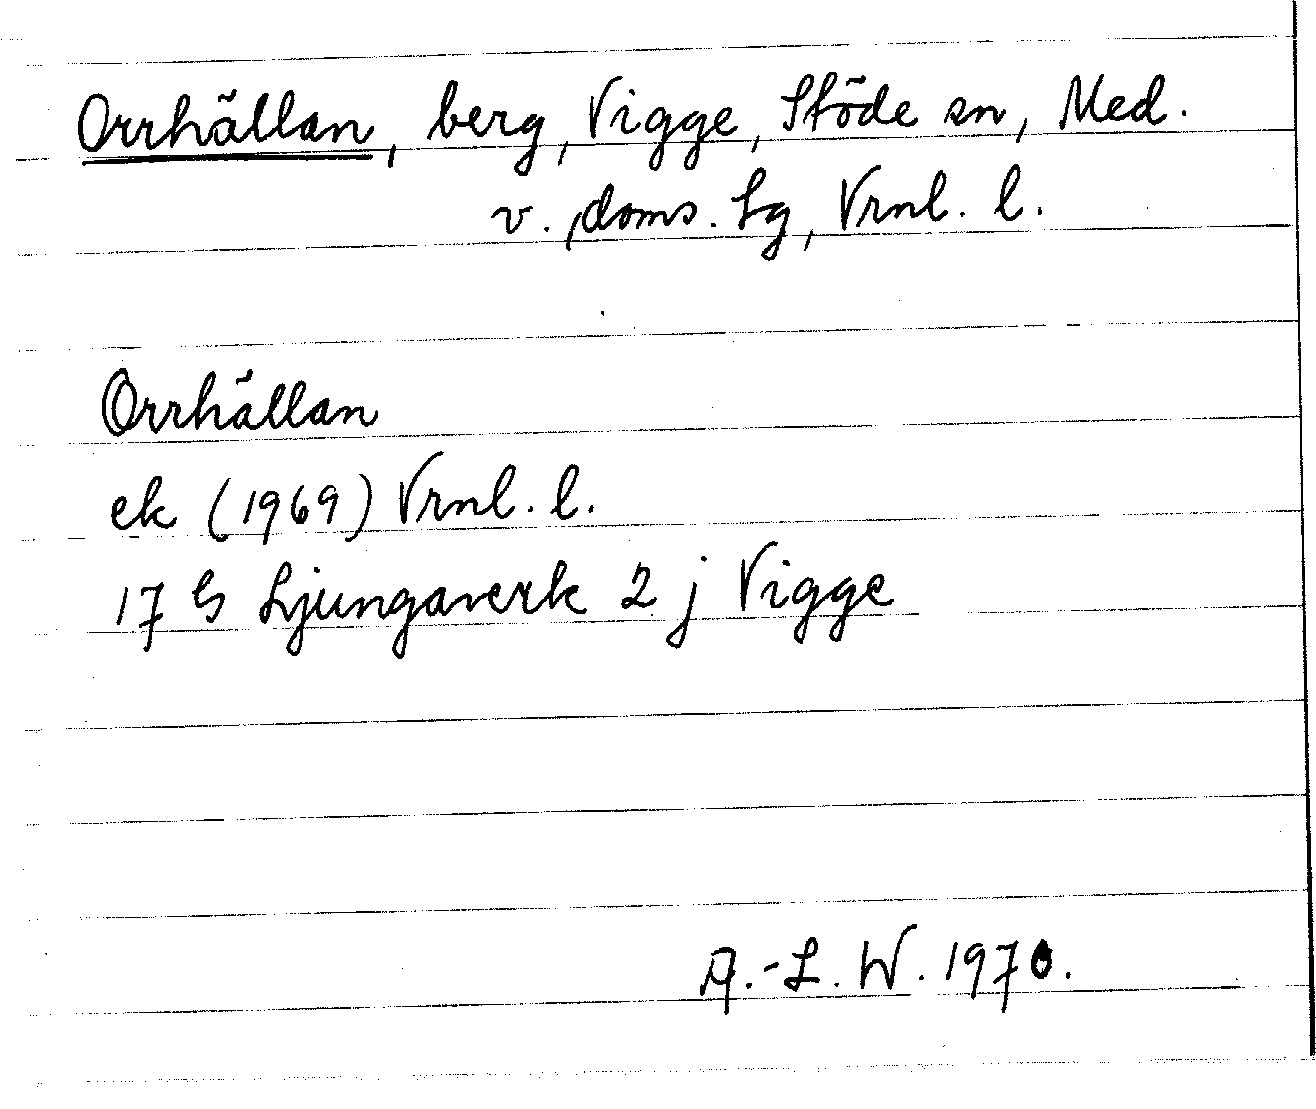 Orrhällan, berg, Vigge, Stöde sn, Med.
v. doms. Lg, Vrnl. l.
Orrhällan
ek (1969) Vrnl. l.
17 G Ljungaverk 2 j Vigge
A.-L. W. 1970.